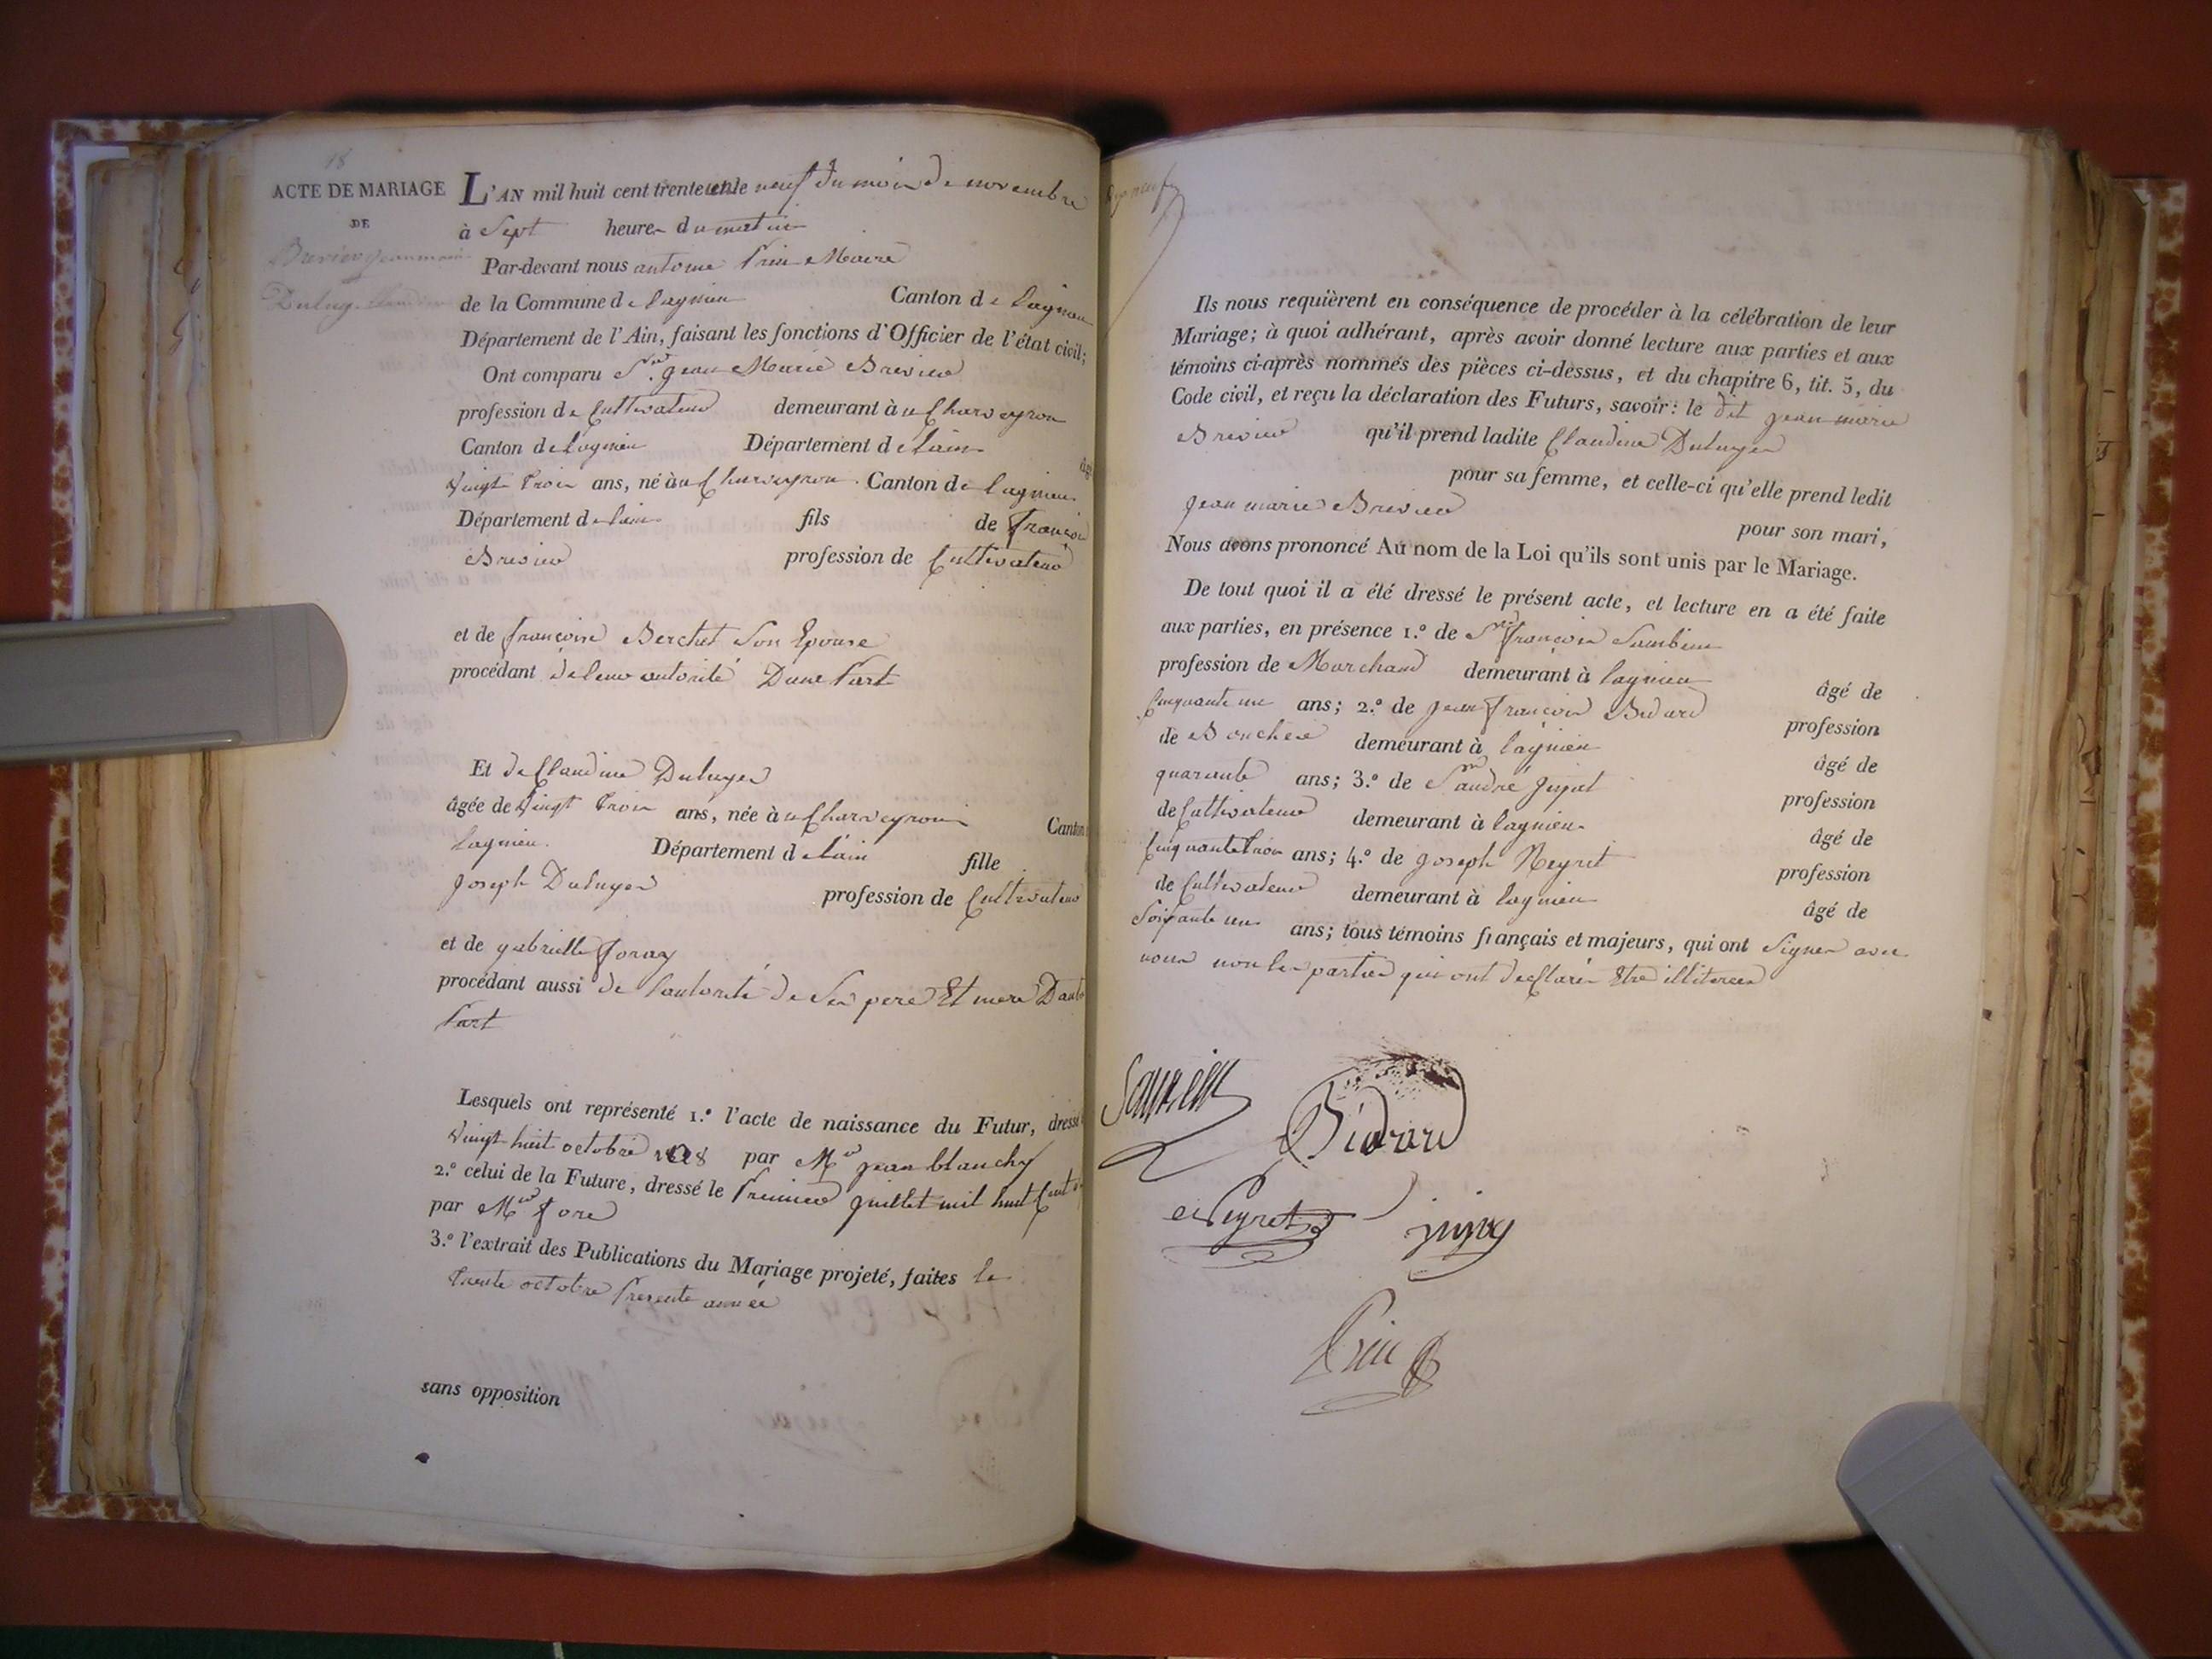 18
ACTE DE MARIAGE
DE
L'AN mil huit cent trente un le neuf du mois de novembre
à Sept heures du matin
Par-devant nous antoine Prin Maire
de la Commune de lagnieu Canton de lagnieu
Département de l'Ain, faisant les fonctions d'Officier de l'état civil;
Ont comparu Sr. jean Marie Brevieu
profession de Cultivateur demeurant à uCharveyron
Canton de lagnieu Département de lain
âgé
Vingt trois ans, né à uCharveyron Canton de lagnieu
Département de lain fils de françois
Brevieu profession de Cultivateur
et de françoise Berchet Son Epouse
procédant de leur autorité Dune Part
Et de Claudine Duluyer
âgée de Vingt trois ans, née à uCharveyron Canton
lagnieu. Département de lain fille
joseph Duluyer profession de Cultivateur
et de gabrielle foray
procédant aussi de lautorité de Ses pere Et mere Dautre
Part
Lesquels ont représenté 1.° l'acte de naissance du Futur, dressé
Vingt huit octobre 1808 par Mr jean blanchy
2.° celui de la Future, dressé le Premier juillet mil huit Cent
par Mr fore
3.° l'extrait des Publications du Mariage projeté, faites le
trente octobre Presente année
sans opposition
Ils nous requièrent en conséquence de procéder à la célébration de leur
Mariage; à quoi adhérant, après avoir donné lecture aux parties et aux
témoins ci-après nommés des pièces ci-dessus, et du chapitre 6, tit. 5, du
Code civil, et reçu la déclaration des Futurs, savoir: le dit jean marie
Brevieu qu'il prend ladite Claudine Duluyer
pour sa femme, et celle-ci qu'elle prend ledit
jean marie Brevieu pour son mari,
Nous avons prononcé Au nom de la Loi qu'ils sont unis par le Mariage.
De tout quoi il a été dressé le présent acte, et lecture en a été faite
aux parties, en présence 1.° de Sr françois
profession de Marchand demeurant à lagnieu âgé de
Cinquante un ans; 2.° de jean françois Bidard profession
de Boucher demeurant à lagnieu âgé de
quarante ans; 3.° de Sr andré jujat profession
de Cultivateur demeurant à lagnieu âgé de
Cinquante trois ans; 4.° de joseph Neyret profession
de Cultivateur demeurant à lagnieu âgé de
Soixante un ans; tous témoins français et majeurs, qui ont Signer avec
nous non les parties qui ont declarés Etre illiterées
Bidard
Neyret
Prin